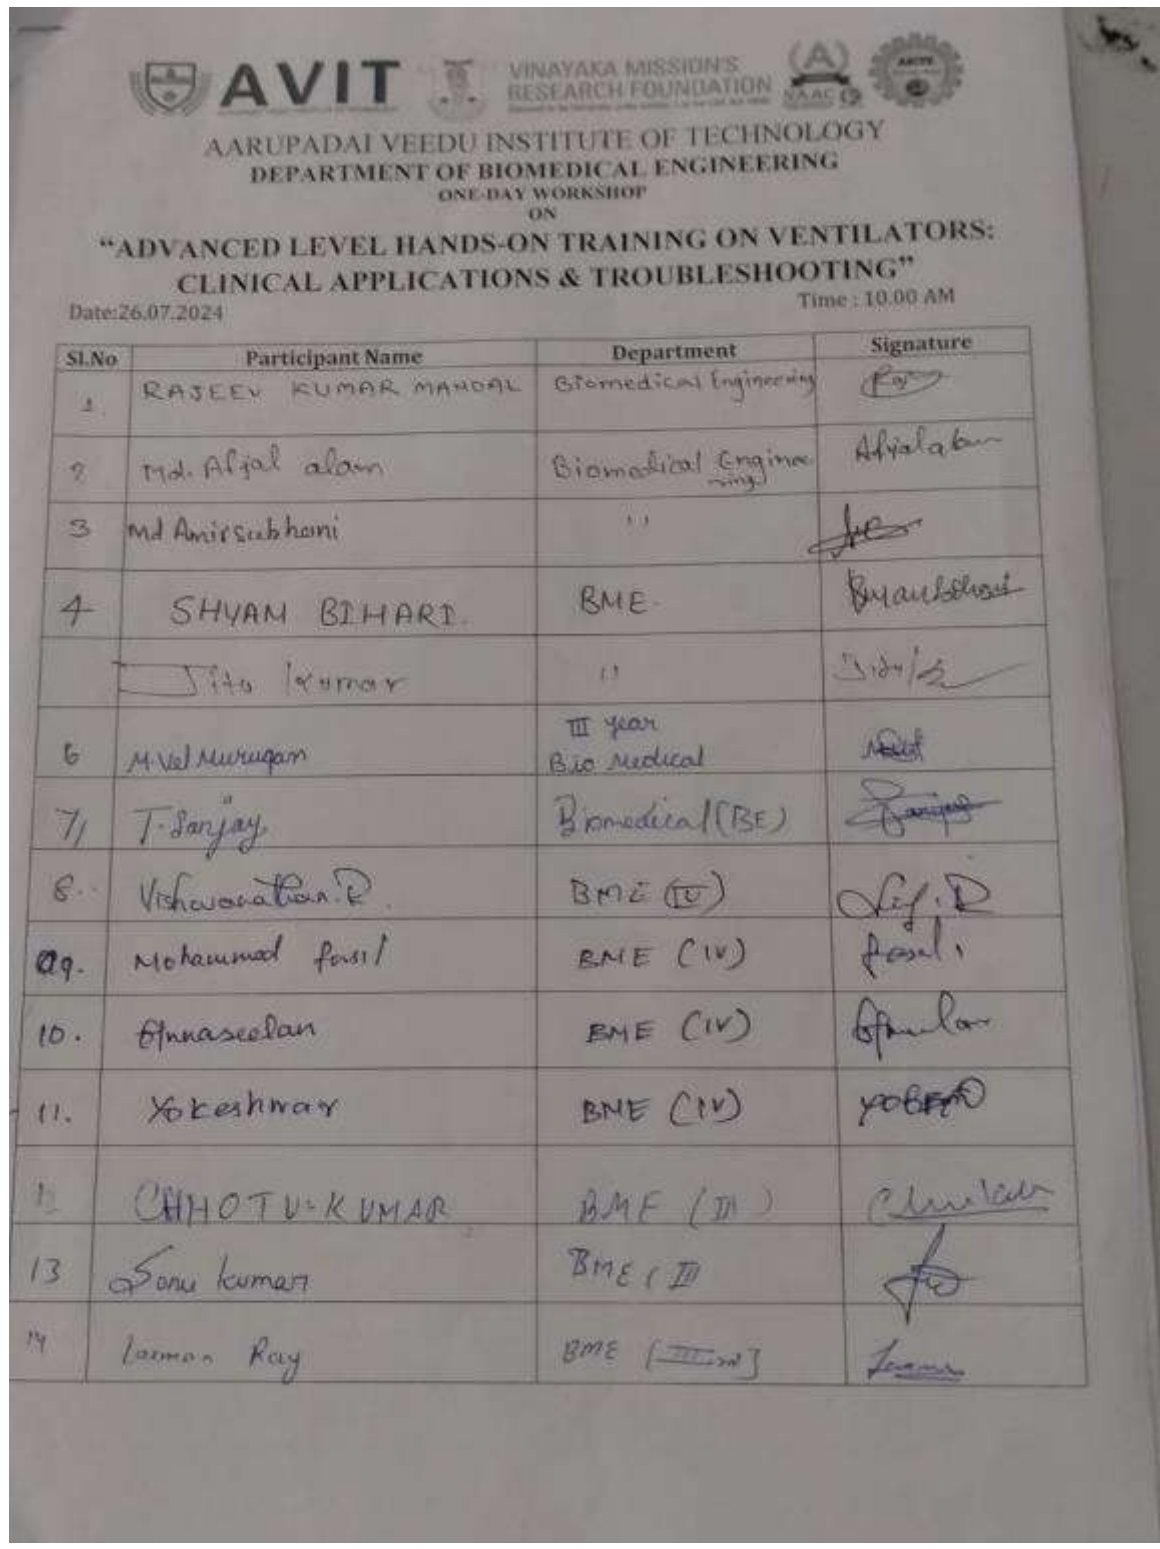 AVIT
VINAYAKA MISSION'S
RESEARCH FOUNDATION
NAAC
AICTE
AARUPADAI VEEDU INSTITUTE OF TECHNOLOGY
DEPARTMENT OF BIOMEDICAL ENGINEERING
ONE-DAY WORKSHOP
ON
“ADVANCED LEVEL HANDS-ON TRAINING ON VENTILATORS:
CLINICAL APPLICATIONS & TROUBLESHOOTING”
Date:26.07.2024 Time : 10.00 AM
Sl.No Participant Name Department Signature
1 RAJEEV KUMAR MANDAL Biomedical Engineering
2 Md. Afjal alam Biomedical Enginee
ring
3 Md Amirsubhani ''
4 SHYAM BIHARI. BME.
Jitu Kumar ''
6 M.Vel Murugan III year
Bio Medical
7 T. Sanjay Biomedical (BE)
8. Vishwanathan.R. BME (IV)
09. Mohammod fasil BME (IV)
10. Gnnaseelan BME (IV)
11. Yokeshwar BME (IV)
CHHOTU KUMAR BME (III)
13 Sonu kumar BME ( III
14 Laxman Ray BME [III]